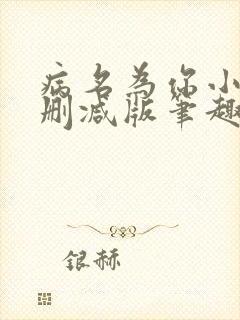 病名为你小
删减版笔趣
银赫